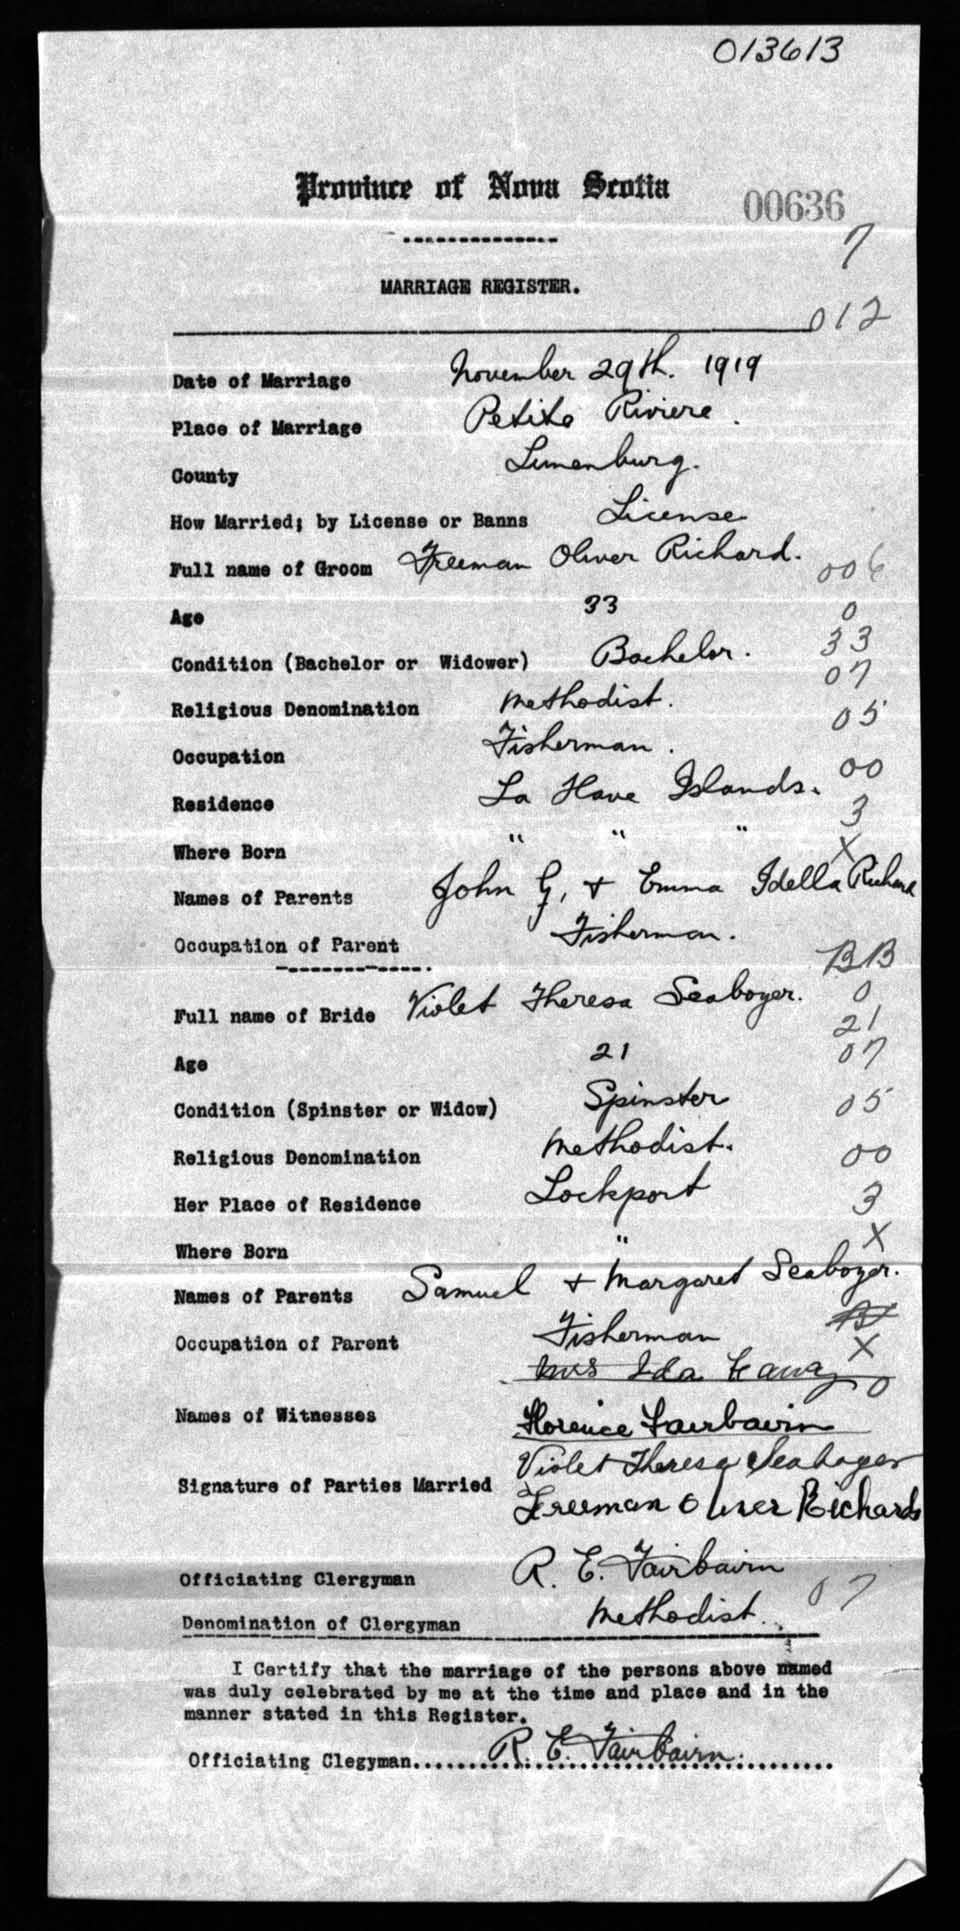 013613
Province of Nova Scotia
00636
7
MARRIAGE REGISTER.
012
Date of Marriage November 29th. 1919
Place of Marriage Petite Riviere.
County Lunenburg.
How Married; by License or Banns License
Full name of Groom Freeman Oliver Richard.
006
Age 33
0
Condition (Bachelor or Widower) Bachelor.
33
07
Religious Denomination Methodist.
05
Occupation Fisherman.
00
Residence La Have Islands.
3
Where Born " " "
X
Names of Parents John G. + Emma Idella Richard
Occupation of Parent Fisherman.
BB
Full name of Bride Violet Theresa Seaboyer.
0
21
Age 21
07
Condition (Spinster or Widow) Spinster
05
Religious Denomination Methodist.
00
Her Place of Residence Lockport
3
Where Born "
X
Names of Parents Samuel + Margaret Seaboyer.
Occupation of Parent Fisherman
X
Mrs Ida
0
Names of Witnesses Florence Fairbairn
Violet Theresa Seaboyer
Signature of Parties Married
Freeman Oliver Richards
Officiating Clergyman R. E. Fairbairn
07
Denomination of Clergyman Methodist.
I Certify that the marriage of the persons above named
was duly celebrated by me at the time and place and in the
manner stated in this Register.
Officiating Clegyman....R. E. Fairbairn.